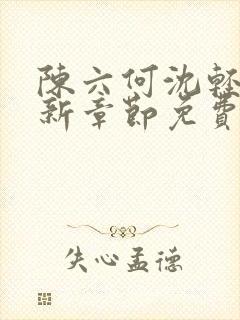 陳六何沈輕
新章節免費
失心孟德